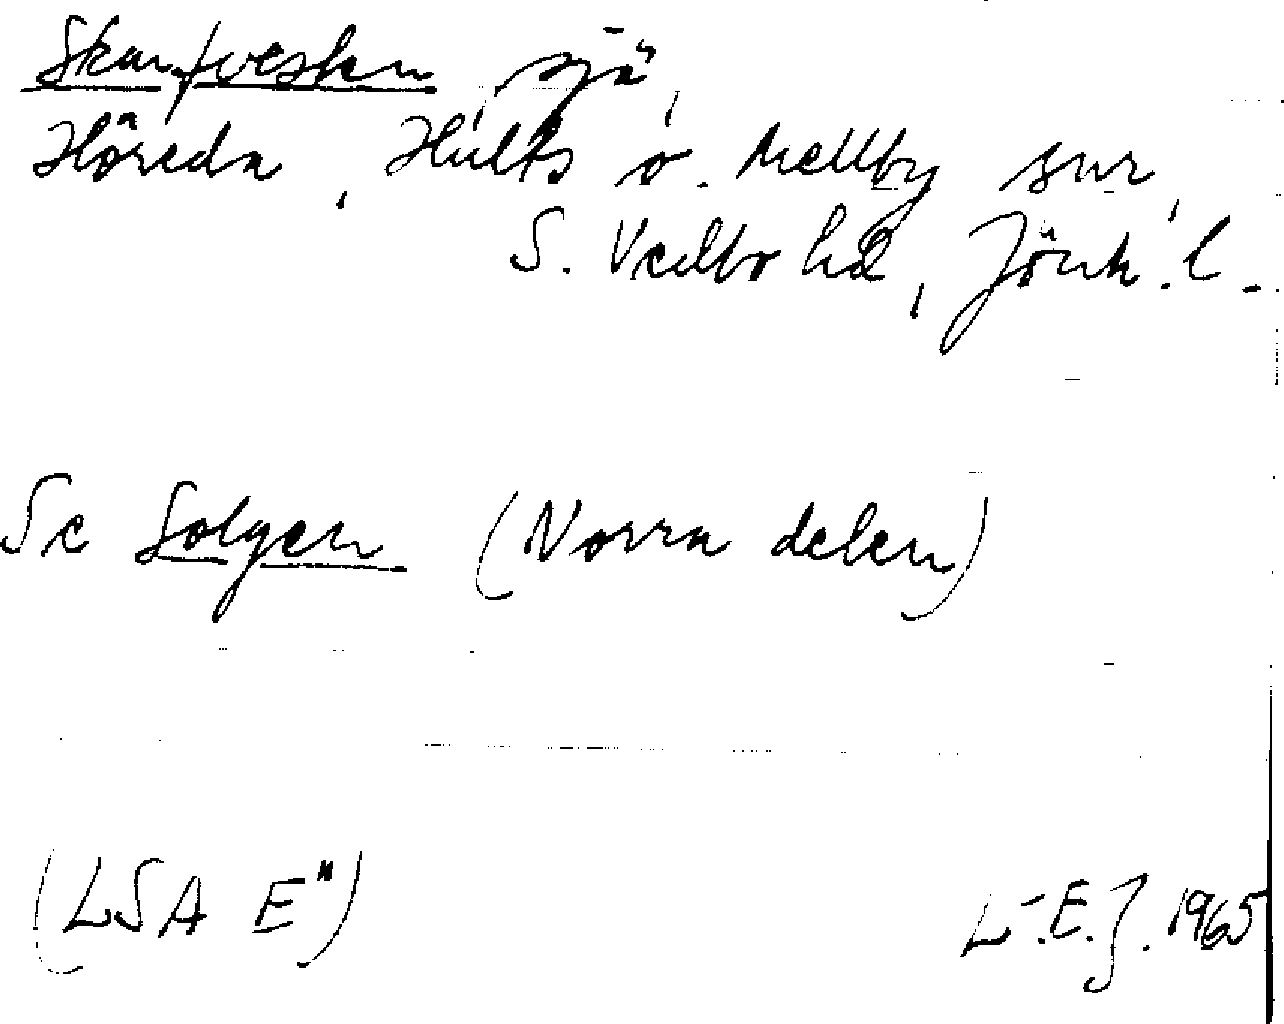 Skarfvesken, sjö,
Höreda, Hults o. Mellby snr,
S. Vedbo hd, Jönk. l.
Se Solgen (Norra delen)
(LSA E")
L.-E. J. 1965